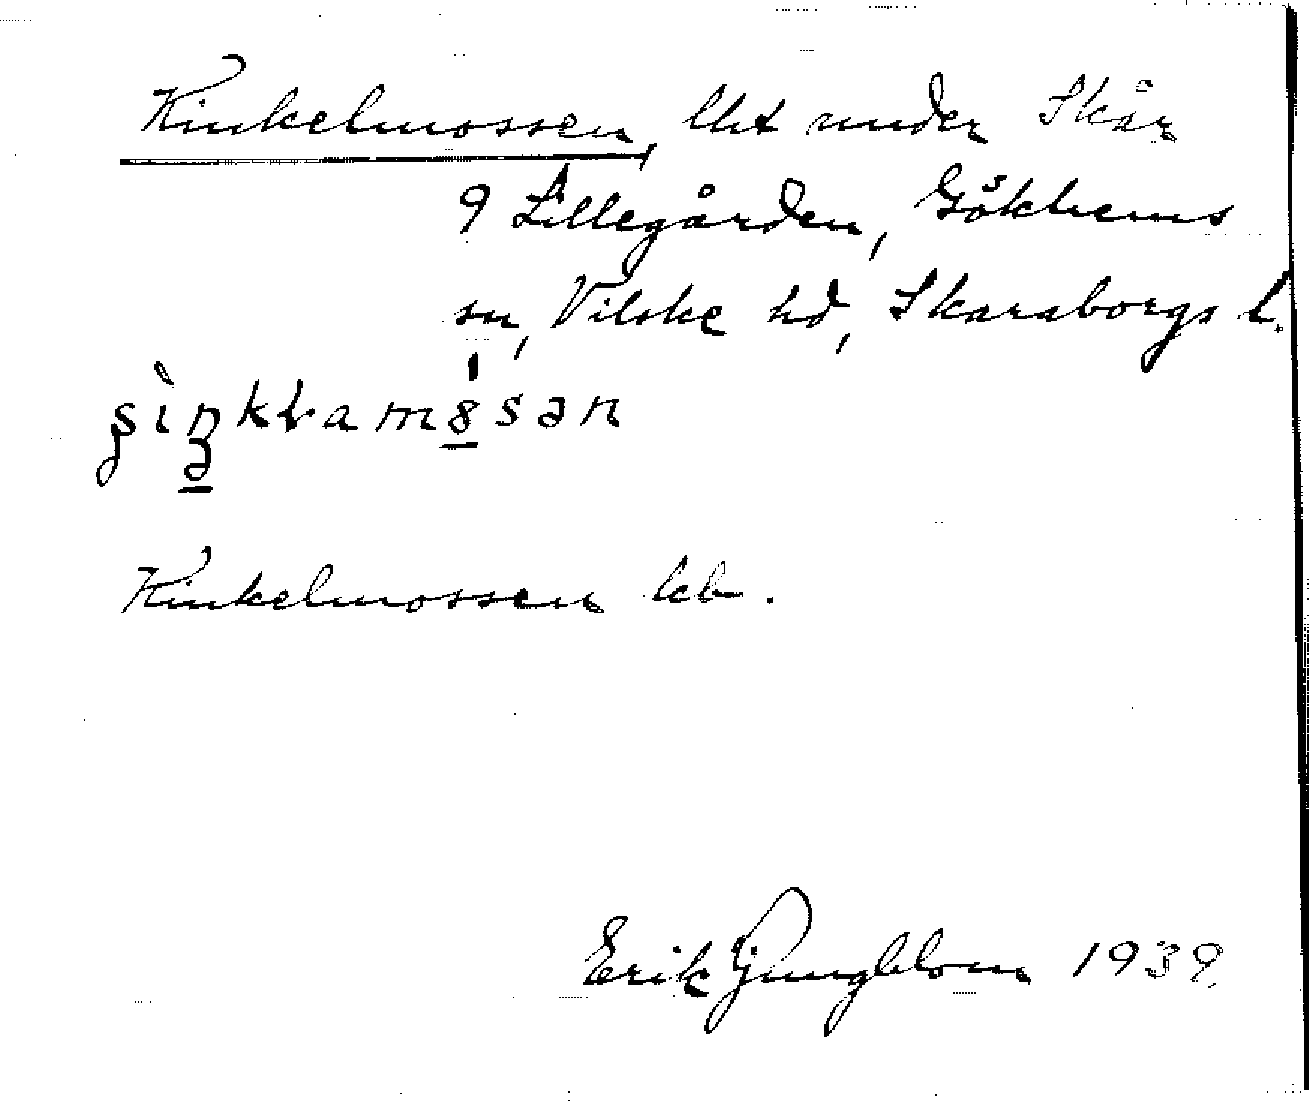 Kinkelmossen, lht under Skår
9 Lillegården, Gökhems
sn, Vilske hd, Skaraborgs l.
Kinkelmossen kb.
Erik Ljungblom 1939